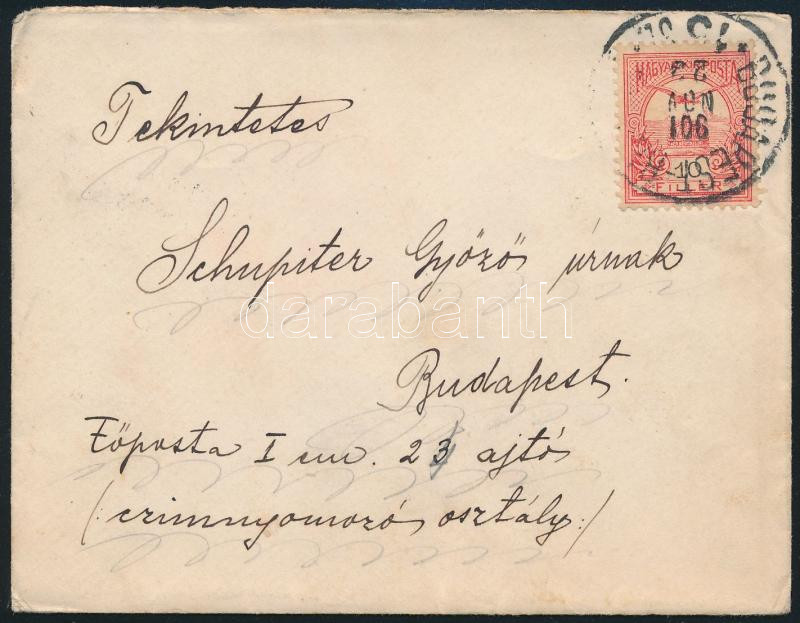 MAGYAR KIR. POSTA
901
NOV
22
10
FILLÉR
Tekintetes
Schupiter Győző úrnak
darabanth
Budapest.
Főposta I em. 23 ajtó
/:czimnyomozó osztály:/